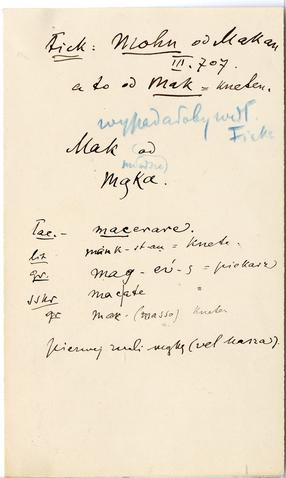 Fick: Mohn od Makan
III. 707.
a to od Mak = kneten.
wypadałoby wdł.
Ficka
Mak od
mąka.
Łac. - macerare.
lit mink-štau = knete.
gr. mag-eú-s = piekarz
sskr. macate "
gr. max- (masso) kneten
pierwej znali mąkę (vel kasza).